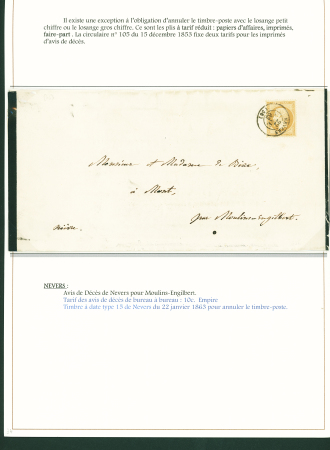 Il existe une exception à l'obligation d'annuler le timbre-poste avec le losange petit
chiffre ou le losange gros chiffre. Ce sont les plis à tarif réduit : papiers d'affaires, imprimés,
faire-part . La circulaire n° 105 du 15 décembre 1853 fixe deux tarifs pour les imprimés
d'avis de décès.
Monsieur et Madame de
à Mont,
par Moulins-Engilbert.
Nièvre
NEVERS :
Avis de Décès de Nevers pour Moulins-Engilbert.
Tarif des avis de décès de bureau à bureau : 10c. Empire
Timbre à date type 15 de Nevers du 22 janvier 1863 pour annuler le timbre-poste.